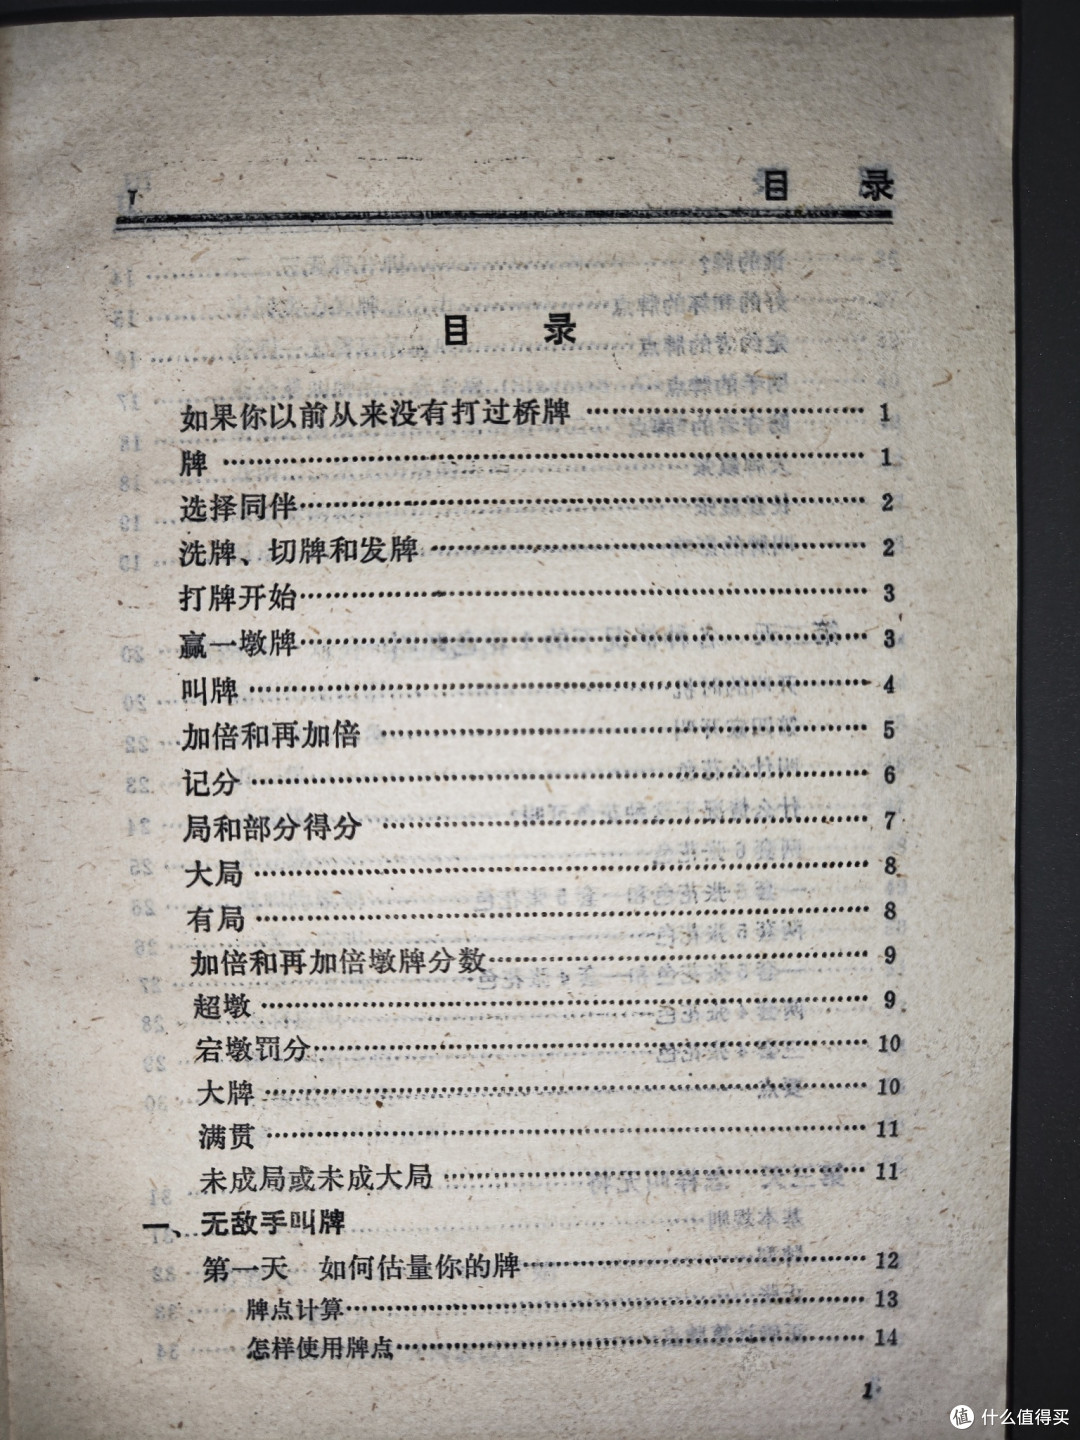 目 录
目 录
如果你以前从来没有打过桥牌 …… 1
牌 …… 1
选择同伴 …… 2
洗牌、切牌和发牌 …… 2
打牌开始 …… 3
赢一墩牌 …… 3
叫牌 …… 4
加倍和再加倍 …… 5
记分 …… 6
局和部分得分 …… 7
大局 …… 8
有局 …… 8
加倍和再加倍墩牌分数 …… 9
超墩 …… 9
宕墩罚分 …… 10
大牌 …… 10
满贯 …… 11
未成局或未成大局 …… 11
一、无敌手叫牌
第一天 如何估量你的牌 …… 12
牌点计算 …… 13
怎样使用牌点 …… 14
1
值 什么值得买